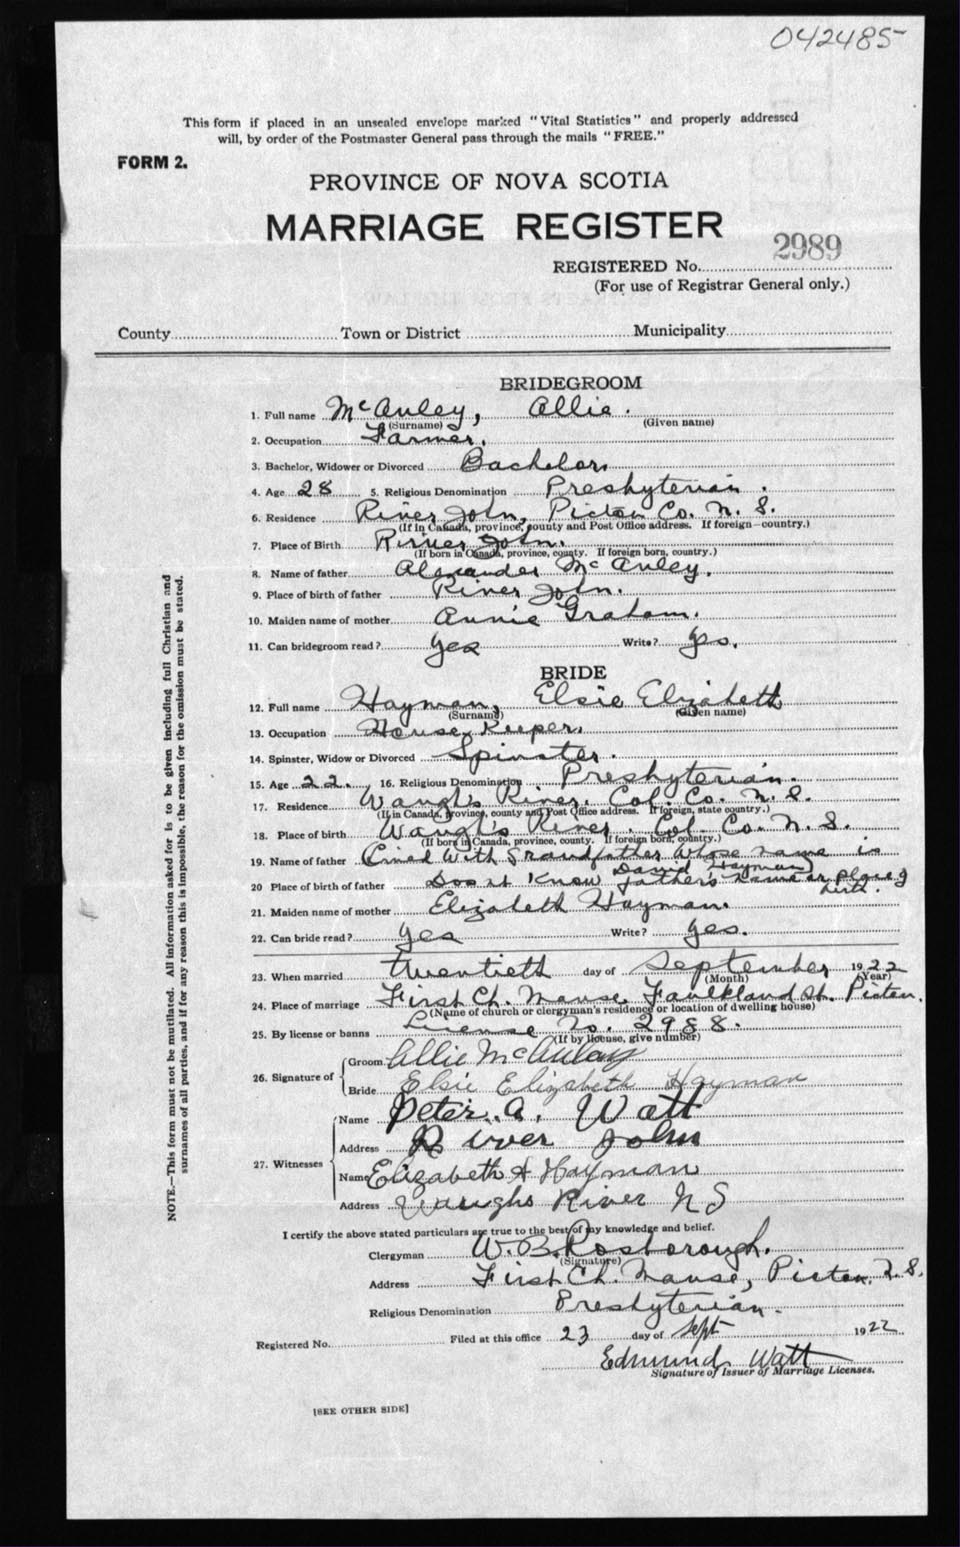 042485
This form if placed in an unsealed envelope marked "Vital Statistics" and properly addressed
will, by order of the Postmaster General pass through the mails "FREE."
FORM 2.
PROVINCE OF NOVA SCOTIA
MARRIAGE REGISTER
2989
REGISTERED No.
(For use of Registrar General only.)
County Town or District Municipality
BRIDEGROOM
1. Full name McAuley, Allie.
(Surname) (Given name)
2. Occupation Farmer.
3. Bachelor, Widower or Divorced Bachelor.
4. Age 28 5. Religious Denomination Presbyterian.
6. Residence River John, Pictou Co. N. S.
(If in Canada, province, county and Post Office address. If foreign—country.)
7. Place of Birth River John.
(If born in Canada, province, county. If foreign born, country.)
8. Name of father Alexander McAuley.
9. Place of birth of father River John.
10. Maiden name of mother Annie Graham.
11. Can bridegroom read? Yes Write? Yes.
BRIDE
12. Full name Hayman, Elsie Elizabeth
(Surname) (Given name)
13. Occupation House Keeper.
14. Spinster, Widow or Divorced Spinster.
15. Age 22. 16. Religious Denomination Presbyterian.
17. Residence Waugh's River. Col. Co. N. S.
(If in Canada, province, county and Post Office address. If foreign, state country.)
18. Place of birth Waugh's River. Col. Co. N. S.
(If born in Canada, province, county. If foreign born, country.)
19. Name of father Lived With Grandfather Whose name is
David Hayman
20 Place of birth of father Does't Know father's name or place of
birth.
21. Maiden name of mother Elizabeth Hayman.
22. Can bride read? Yes Write? Yes.
23. When married twentieth day of September 1922
(Month) (Year)
24. Place of marriage First Ch. Manse Faulkland St. Pictou.
(Name of church or clergyman's residence or location of dwelling house)
25. By license or banns License No. 2988.
(If by license, give number)
26. Signature of Groom Allie McAulay
Bride Elsie Elizabeth Hayman
27. Witnesses Name Peter. A. Watt
Address River John
Name Elizabeth A Hayman
Address Waughs River N S
I certify the above stated particulars are true to the best of my knowledge and belief.
Clergyman W. B. Rosborough.
(Signature)
Address First Ch. Manse, Pictou. N. S.
Religious Denomination Presbyterian.
Registered No. Filed at this office 23 day of Sept 1922
Edmund Watt
Signature of Issuer of Marriage Licenses.
[SEE OTHER SIDE]
NOTE.—This form must not be mutilated. All information asked for is to be given including full Christian and
surnames of all parties, and if for any reason this is impossible, the reason for the omission must be stated.